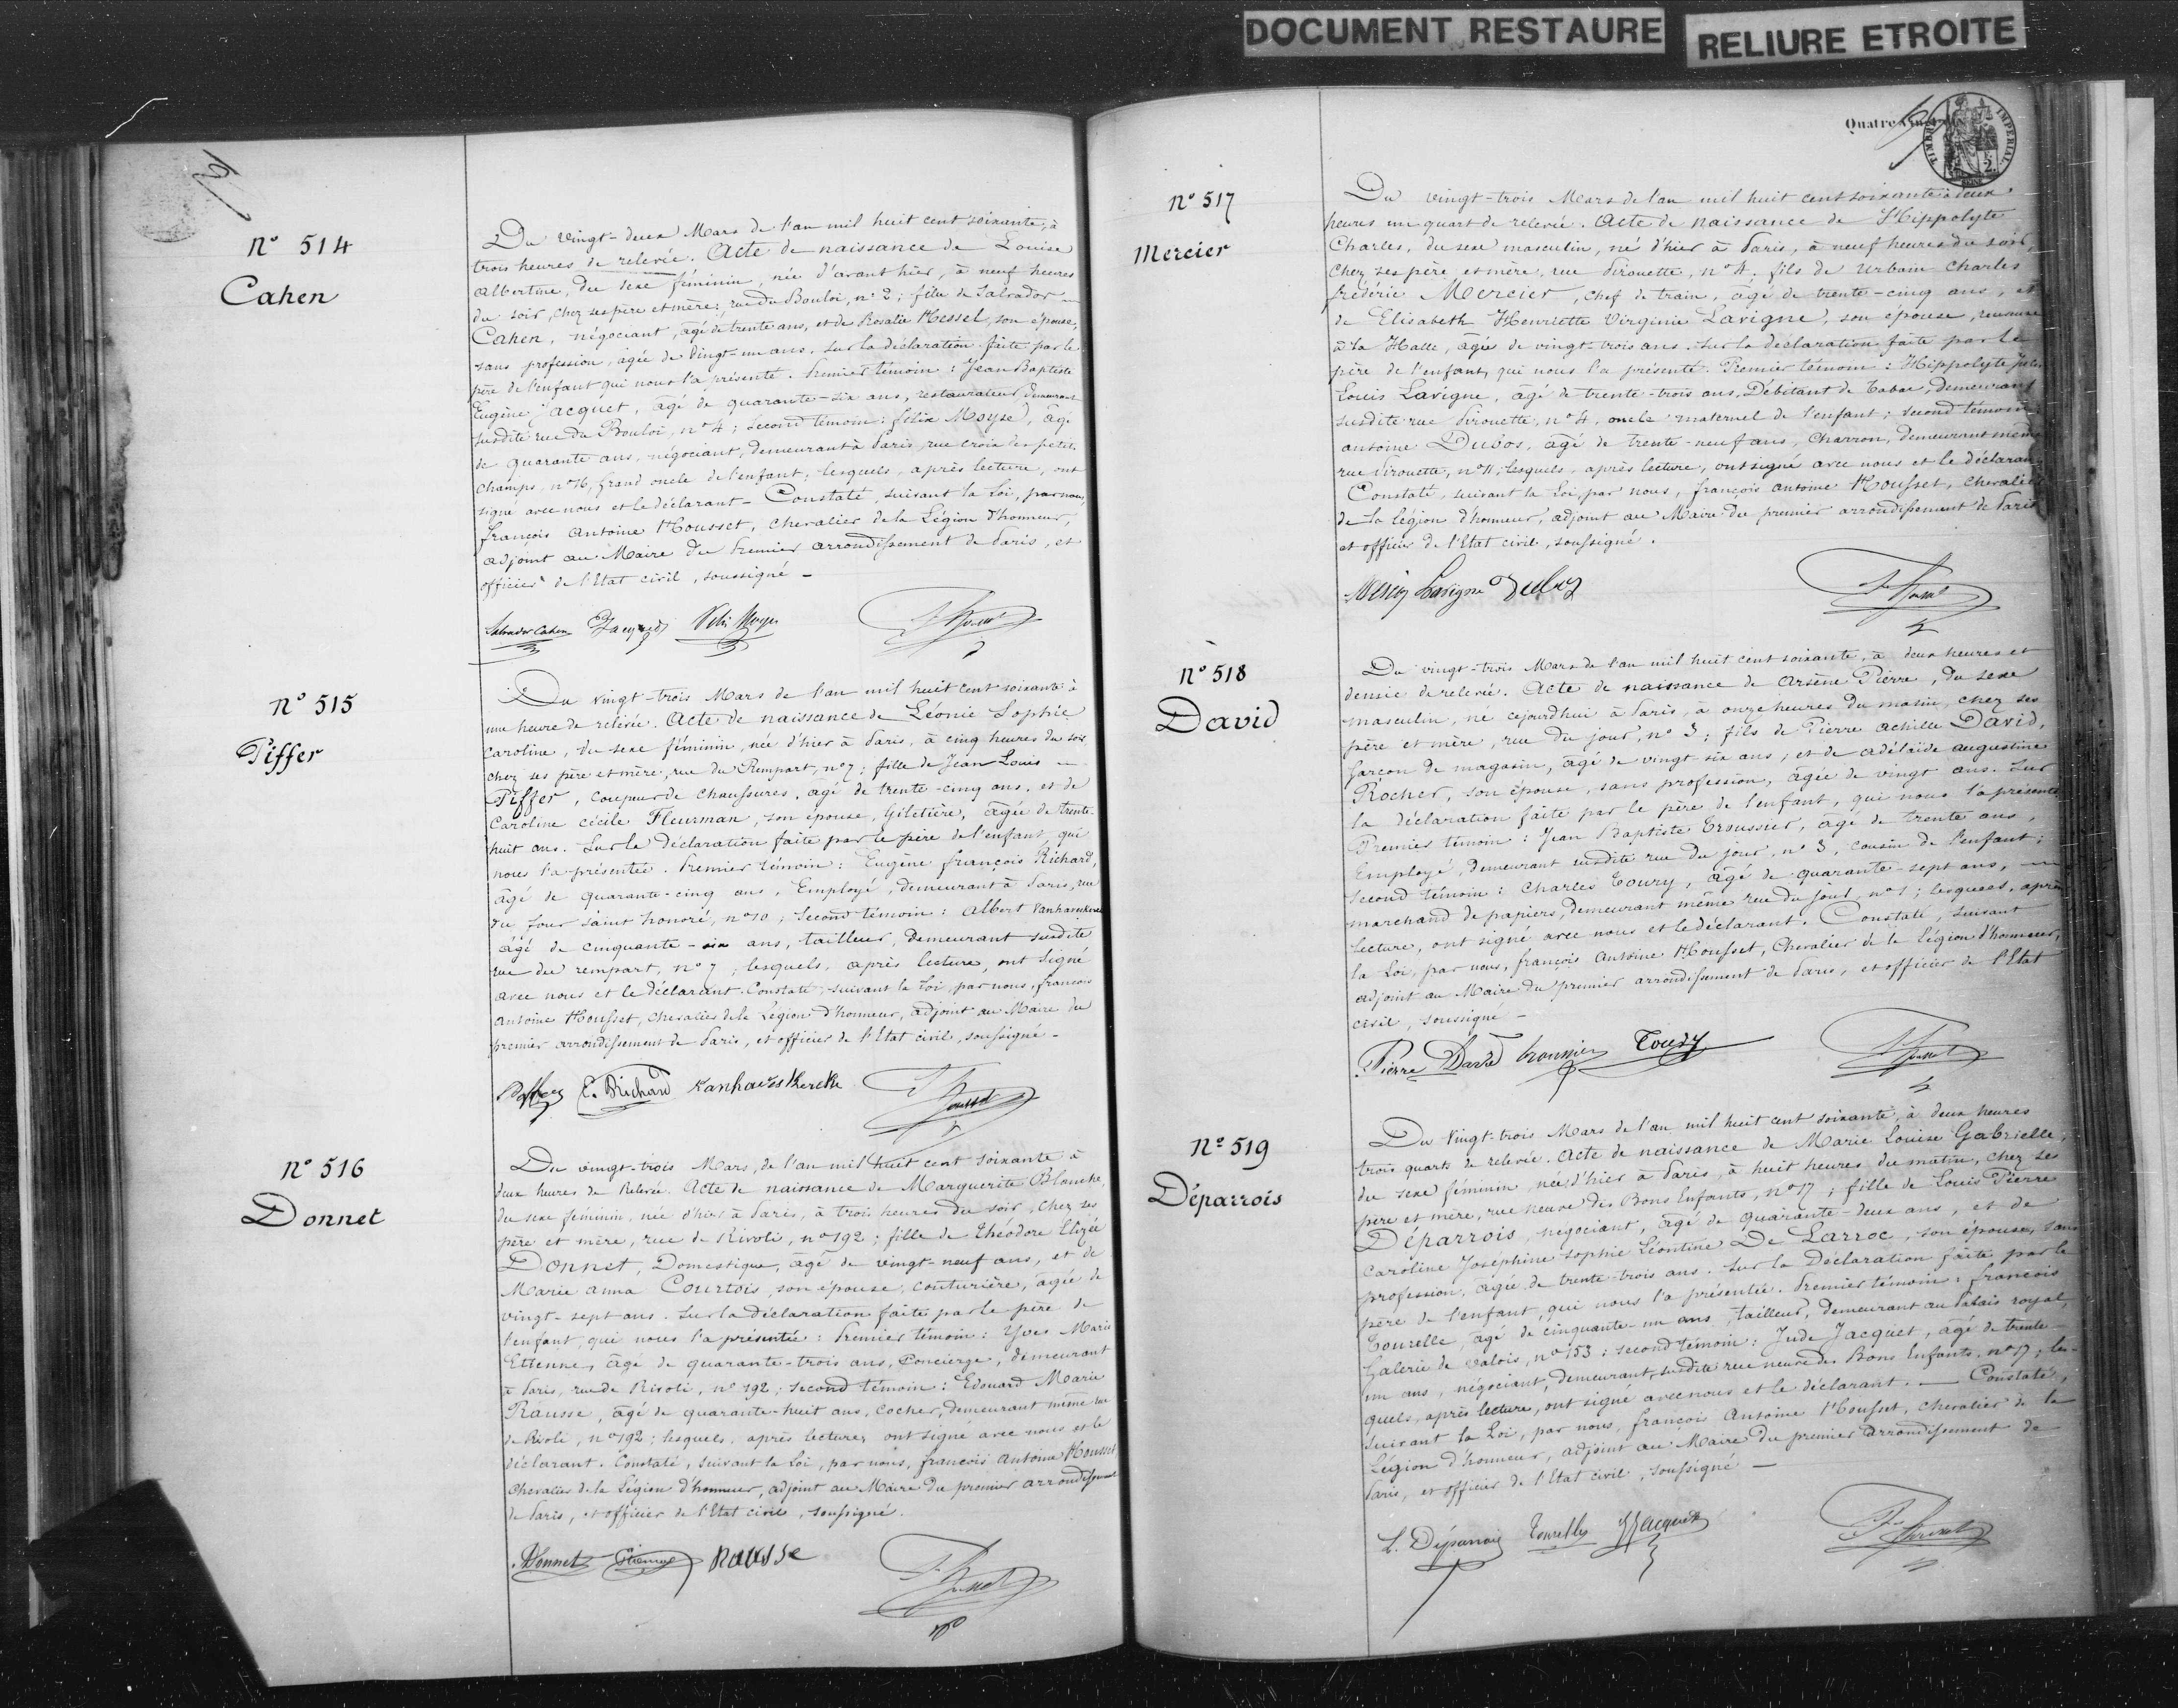 DOCUMENT RESTAURE
RELIURE ETROITE
N° 514
Cahen
Du vingt-deux Mars de l'an mil huit cent soixante, à
trois heures de relevée. Acte de naissance de Louise
Albertine, du sexe féminin, née d'avant hier, à neuf heures
du soir, chez ses père et mère, rue du Bouloi, n° 2; fille de Salvador
Cahen, négociant, âgé de trente ans, et de Rosalie Hessel, son épouse,
sans profession, âgée de vingt-un ans. Sur la déclaration faite par le
père de l'enfant qui nous l'a présenté. Premier témoin: Jean Baptiste
Eugène Jacquet, âgé de quarante-six ans, restaurateur, demeurant
susdite rue du Bouloi, n° 4; second témoin: félix Moyse, âgé
de quarante ans, négociant, demeurant à Paris, rue croix des petits
champs, n° 16, grand oncle de l'enfant; lesquels, après lecture, ont
signé avec nous et le déclarant - Constaté, suivant la Loi, par nous,
françois Antoine Housset, Chevalier de la Légion d'honneur,
adjoint au Maire du Premier arrondissement de Paris, et
officier de l'Etat civil, soussigné -
Salvador Cahen Jacquet Félix Moyse
N° 515
Piffer
Du vingt-trois Mars de l'an mil huit cent soixante à
une heure de relevée. Acte de naissance de Léonie Sophie
Caroline, du sexe féminin, née d'hier à Paris, à cinq heures du soir
chez ses père et mère, rue du Rempart, n° 7; fille de Jean Louis
Piffer, coupeur de chaussures, âgé de trente-cinq ans, et de
Caroline Cécile Fleurman, son épouse, Giletière, âgée de trente-
huit ans. Sur la déclaration faite par le père de l'enfant qui
nous l'a présentée. Premier témoin: Eugène françois Richard,
âgé de quarante-cinq ans, Employé, demeurant à Paris, rue
du four saint honoré, n° 10; Second témoin: Albert
âgé de cinquante-six ans, tailleur, demeurant susdite
rue du rempart, n° 7; lesquels, après lecture, ont signé
avec nous et le déclarant. Constaté, suivant la Loi, par nous, françois
Antoine Housset, Chevalier de la Légion d'honneur, adjoint au Maire du
premier arrondissement de Paris, et officier de l'Etat civil, soussigné -
Piffer E. Richard
N° 516
Donnet
Du vingt-trois Mars, de l'an mil huit cent soixante à
deux heures de Relevée. Acte de naissance de Marguerite Blanche,
du sexe féminin, née d'hier à Paris, à trois heures du soir, chez ses
père et mère, rue de Rivoli, n° 192; fille de Théodore Elizée
Donnet, Domestique, âgé de vingt-neuf ans, et de
Marie Anna Courtois, son épouse, couturière, âgée de
vingt-sept ans. Sur la déclaration faite par le père de
l'enfant, qui nous l'a présentée: Premier témoin: Yves Marie
Etienne, âgé de quarante-trois ans, Concierge, demeurant
à Paris, rue de Rivoli, n° 192; second témoin: Edouard Marie
Rausse, âgé de quarante-huit ans, cocher, demeurant même rue
de Rivoli, n° 192; lesquels, après lecture, ont signé avec nous et le
déclarant. Constaté, suivant la Loi, par nous, françois Antoine Housset
Chevalier de la Légion d'honneur, adjoint au Maire du premier arrondissement
de Paris, et officier de l'Etat civil, soussigné.
Donnet Etienne Rausse
Quatre-vingt
TIMBRE IMPERIAL
N° 517
Mercier
Du vingt-trois Mars de l'an mil huit cent soixante à deux
heures un quart de relevée. Acte de naissance de Hippolyte
Charles, du sexe masculin, né d'hier à Paris, à neuf heures du soir,
chez ses père et mère, rue Pirouette, n° 4; fils de Urbain Charles
frédéric Mercier, chef de train, âgé de trente-cinq ans, et
de Elisabeth Henriette Virginie Lavigne, son épouse,
à la Halle, âgée de vingt-trois ans. Sur la déclaration faite par le
père de l'enfant, qui nous l'a présenté. Premier témoin: Hippolyte
Louis Lavigne, âgé de trente-trois ans, Débitant de Tabac, demeurant
susdite rue Pirouette, n° 4, oncle maternel de l'enfant; second témoin
antoine Dubos, âgé de trente-neuf ans, Charron, demeurant même
rue Pirouette, n° 4; lesquels, après lecture, ont signé avec nous et le déclarant
Constaté, suivant la Loi, par nous, françois antoine Housset, Chevalier
de la légion d'honneur, adjoint au Maire du premier arrondissement de Paris
et officier de l'Etat civil, soussigné.
Mercier Lavigne Dubos
N° 518
David
Du vingt-trois Mars de l'an mil huit cent soixante, à deux heures et
demie de relevée. Acte de naissance de Arsène Pierre, du sexe
masculin, né cejourd'hui à Paris, à onze heures du matin, chez ses
père et mère, rue du jour, n° 3; fils de Pierre Achille David,
Garçon de magasin, âgé de vingt-six ans, et de Adélaïde augustine
Rocher, son épouse, sans profession, âgée de vingt ans. Sur
la déclaration faite par le père de l'enfant, qui nous l'a présenté
Premier témoin: Jean Baptiste Troussier, âgé de trente ans,
Employé, demeurant susdite rue du jour, n° 3, cousin de l'enfant;
second témoin: Charles Toury, âgé de quarante-sept ans,
marchand de papiers, demeurant même rue du jour, n° 1; lesquels, après
lecture, ont signé avec nous et le déclarant. Constaté, suivant
la Loi, par nous, françois Antoine Housset, Chevalier de la Légion d'honneur,
adjoint au Maire du premier arrondissement de Paris, et officier de l'Etat
civil, soussigné -
Pierre David troussier Toury
N° 519
Déparrois
Du Vingt-trois Mars de l'an mil huit cent soixante, à deux heures
trois quarts de relevée. Acte de naissance de Marie Louise Gabrielle,
du sexe féminin, née d'hier à Paris, à huit heures du matin, chez ses
père et mère, rue neuve des Bons Enfants, n° 17; fille de Louis Pierre
Déparrois, négociant, âgé de quarante-deux ans, et de
Caroline Joséphine Sophie Léontine De Larroc, son épouse, sans
profession, âgée de trente-trois ans. Sur la Déclaration faite par le
père de l'enfant, qui nous l'a présentée. Premier témoin: françois
Tourelle, âgé de cinquante-un ans, tailleur, demeurant au Palais royal,
Galerie de Valois, n° 153; second témoin: Jude Jacquet, âgé de trente-
un ans, négociant, demeurant susdite rue neuve des Bons Enfants, n° 17; les-
quels, après lecture, ont signé avec nous et le déclarant. — Constaté,
suivant la Loi, par nous, françois Antoine Housset, chevalier de la
Légion d'honneur, adjoint au Maire du premier arrondissement de
Paris, et officier de l'Etat civil, soussigné —
L. Déparrois Tourelle Jacquet